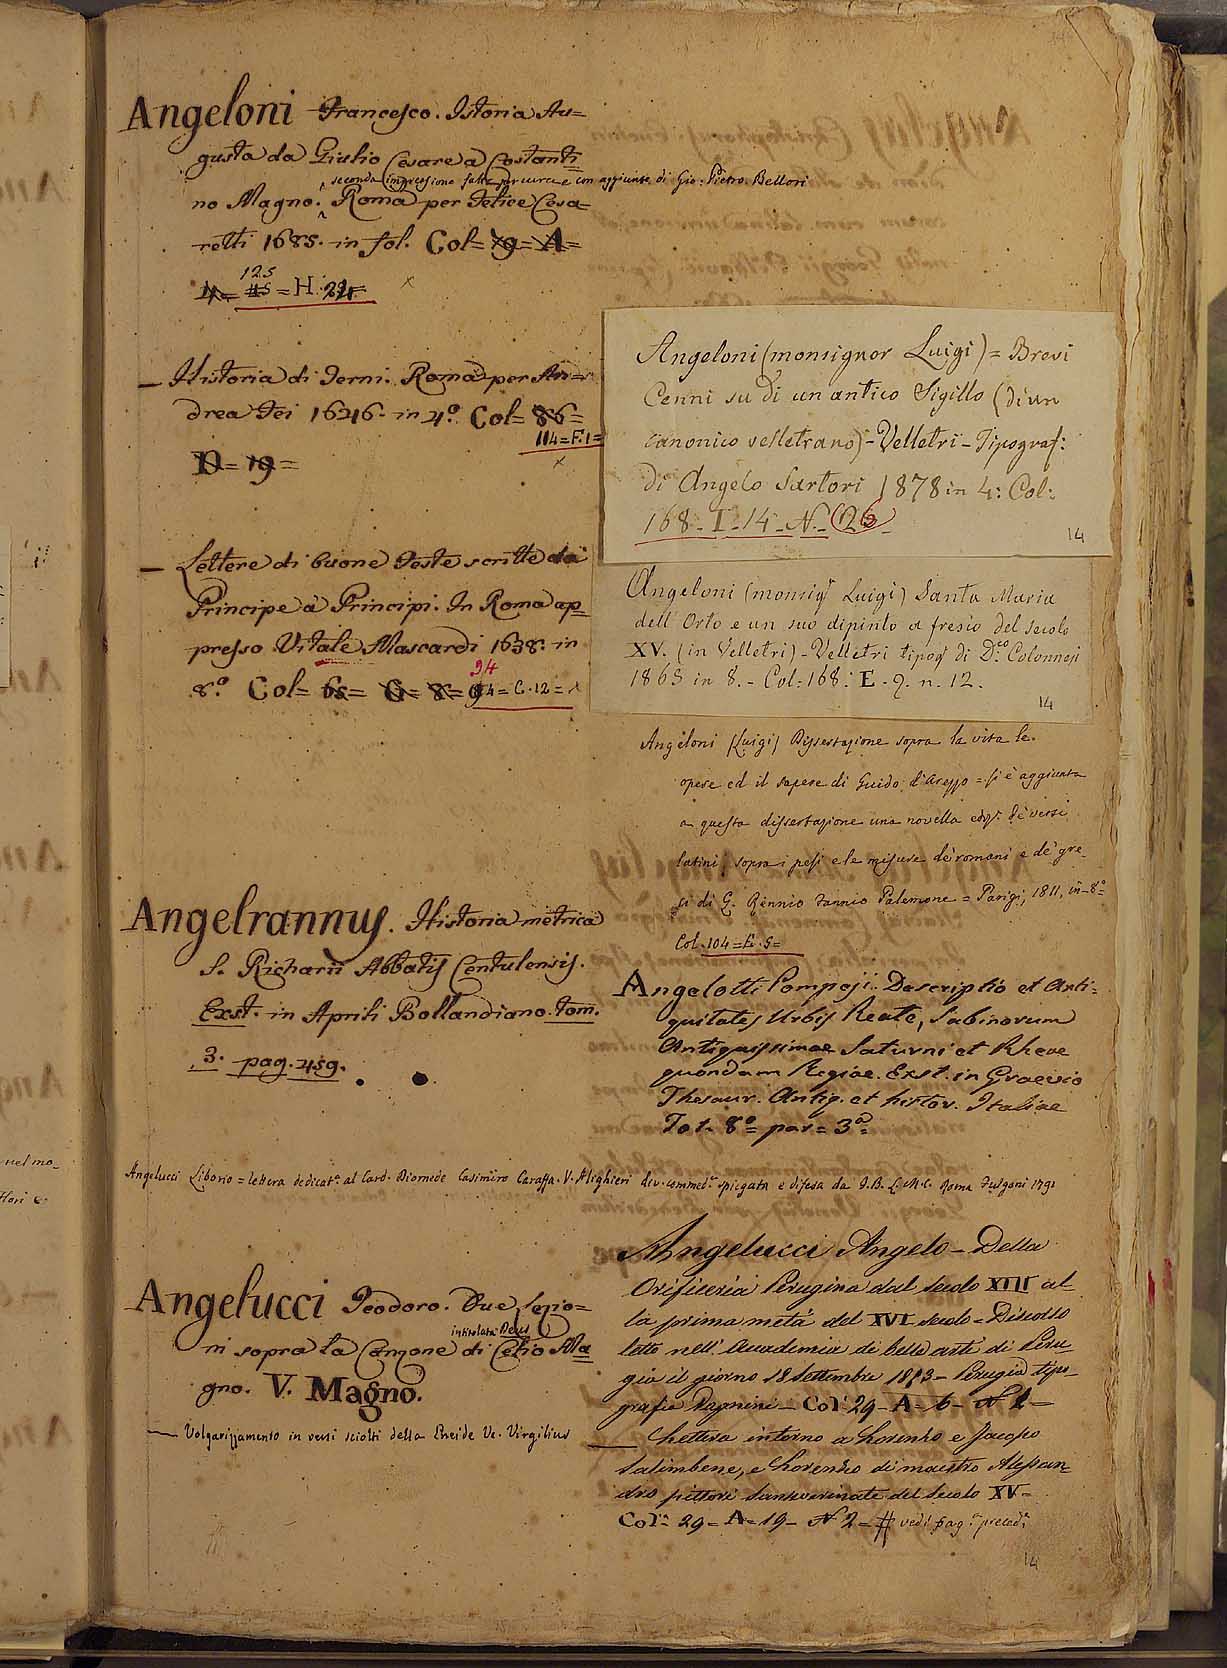 Angeloni Francesco. Istoria Au=
gusta da Giulio Cesare a Costanti
seconda impressione fatta per cura e con aggiunte di Gio: Pietro Bellori
no Magno. Roma per Felice Cesa=
retti 1685. in fol. Col= 19= A=
125
= H. 24=
— Historia di Terni. Roma per An=
drea Fei 1646. in 4.º Col= 86=
104=F.1=
D= 19=
— Lettere di buone Feste scritte da
Principe à Principi. In Roma ap=
presso Vitale Mascardi 1638. in
94
8.º Col= 65= G= 8= 4= C.12=
Angelrannus. Historia metrica
S. Richarii Abbatis Centulensis.
Exst. in Aprili Bollandiano. tom.
3. pag. 459.
Angelucci Liborio = lettera dedicat.ª al Card. Diomede Casimiro Caraffa. V. Alighieri div. commed.ª spiegata e difesa da I.B. L. M.C. Roma Fulgoni 1791
Angelucci Teodoro. Due lezio=
intitolata Deus
ni sopra la Canzone di Celio Ma
gno. V. Magno.
— Volgarizzamento in versi sciolti della Eneide V. Virgilius
Angeloni (monsignor Luigi) = Brevi
Cenni su di un antico Sigillo (di un
canonico velletrano) - Velletri - Tipograf:
di Angelo Sartori 1878 in 4: Col:
168 - I - 14 - N. - 26 -
14
Angeloni (monsigʳ Luigi) Santa Maria
dell'Orto e un suo dipinto a fresco del secolo
XV. (in Velletri) - Velletri tipogʳ di D.co Colonnesi
1865 in 8. - Col: 168: E - 9. n. 12.
14
Angeloni (Luigi) Dissertazione sopra la vita le
opere ed il sapere di Guido d'Arezzo = si è aggiunta
a questa dissertazione una novella ediz: de' versi
latini, sopra i pesi e le misure de' romani e de' gre=
ci di Q. Rennio Fannio Palemone = Parigi, 1811, in 8º=
Col. 104 = E. 5=
Angelotti Pompeji. Descriptio et Anti=
quitates Urbis Reate, Sabinorum
Antiquissimae Saturni et Rheae
quondam Regiae. Exst. in Graevio
Thesaur. Antiq. et histor. Italiae
Tot. 8º= par= 3ª=
Angelucci Angelo - Della
Orificeria Perugina dal secolo XIII al
la prima metà del XVI secolo = Discorso
letto nell'Accademia di belle arti di Peru
gia il giorno 18 Settembre 1873 - Perugia tipo=
grafia Bagnini - Colª 29 - A - 6 - N 2 =
— Lettera intorno a Lorenzo e Jacopo
Salimbene, e Lorenzo di maestro Alessan=
dro pittori Sanseverinate del secolo XV=
Colª 29 = A = 19 - N 2 = # vedi pag.ª preced.ª
14